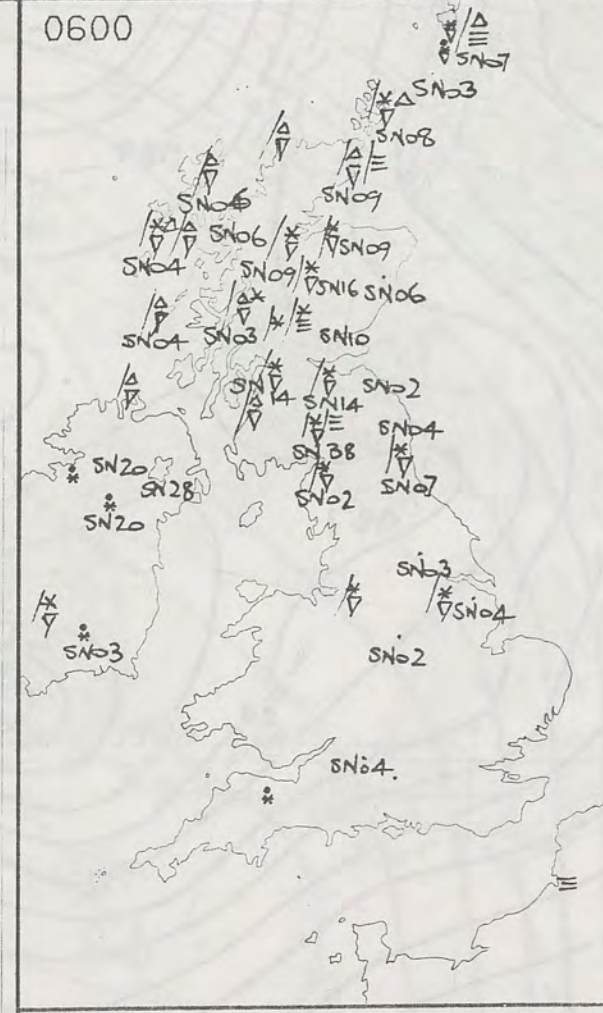 0600
SN07
SN03
SN08
SN09
SN06
SN04
SN09
SN09
SN16
SN06
SN04
SN03
SN10
SN14
SN14
SN02
SN38
SN04
SN20
SN28
SN02
SN07
SN20
SN03
SN04
SN03
SN02
SN04.